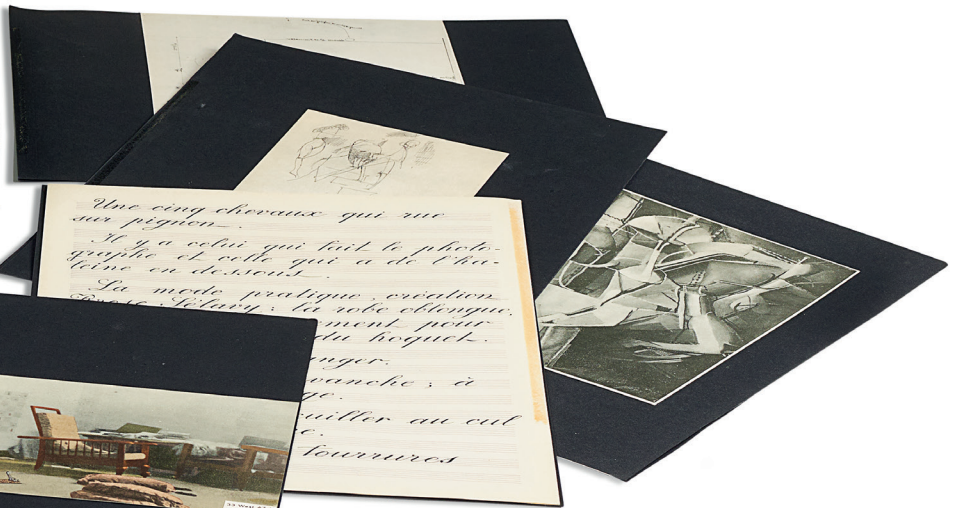 Une cinq chevaux qui rue
sur pignon.
Il y a celui qui fait le photo-
graphe et celle qui a de l'ha-
leine en dessous.
La mode pratique, création
Rrose Sélavy : la robe oblongue,
ment pour
du hoquet.
anger.
vanche ; à
ge.
uiller au cul
e.
fourrures